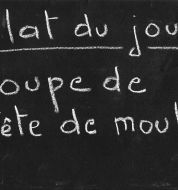 lat du jou
oupe de
ête de moul